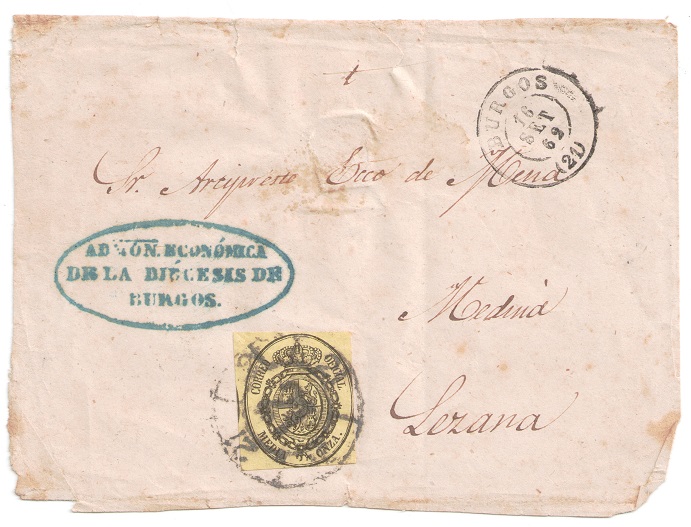 BURGOS
16
SET
62
(21)
Sr. Arcipreste Ecco de Mena
ADMON. ECONÓMICA
DE LA DIÓCESIS DE
BURGOS.
Medina
Lezana
CORREO OFICIAL
MEDIA ONZA.